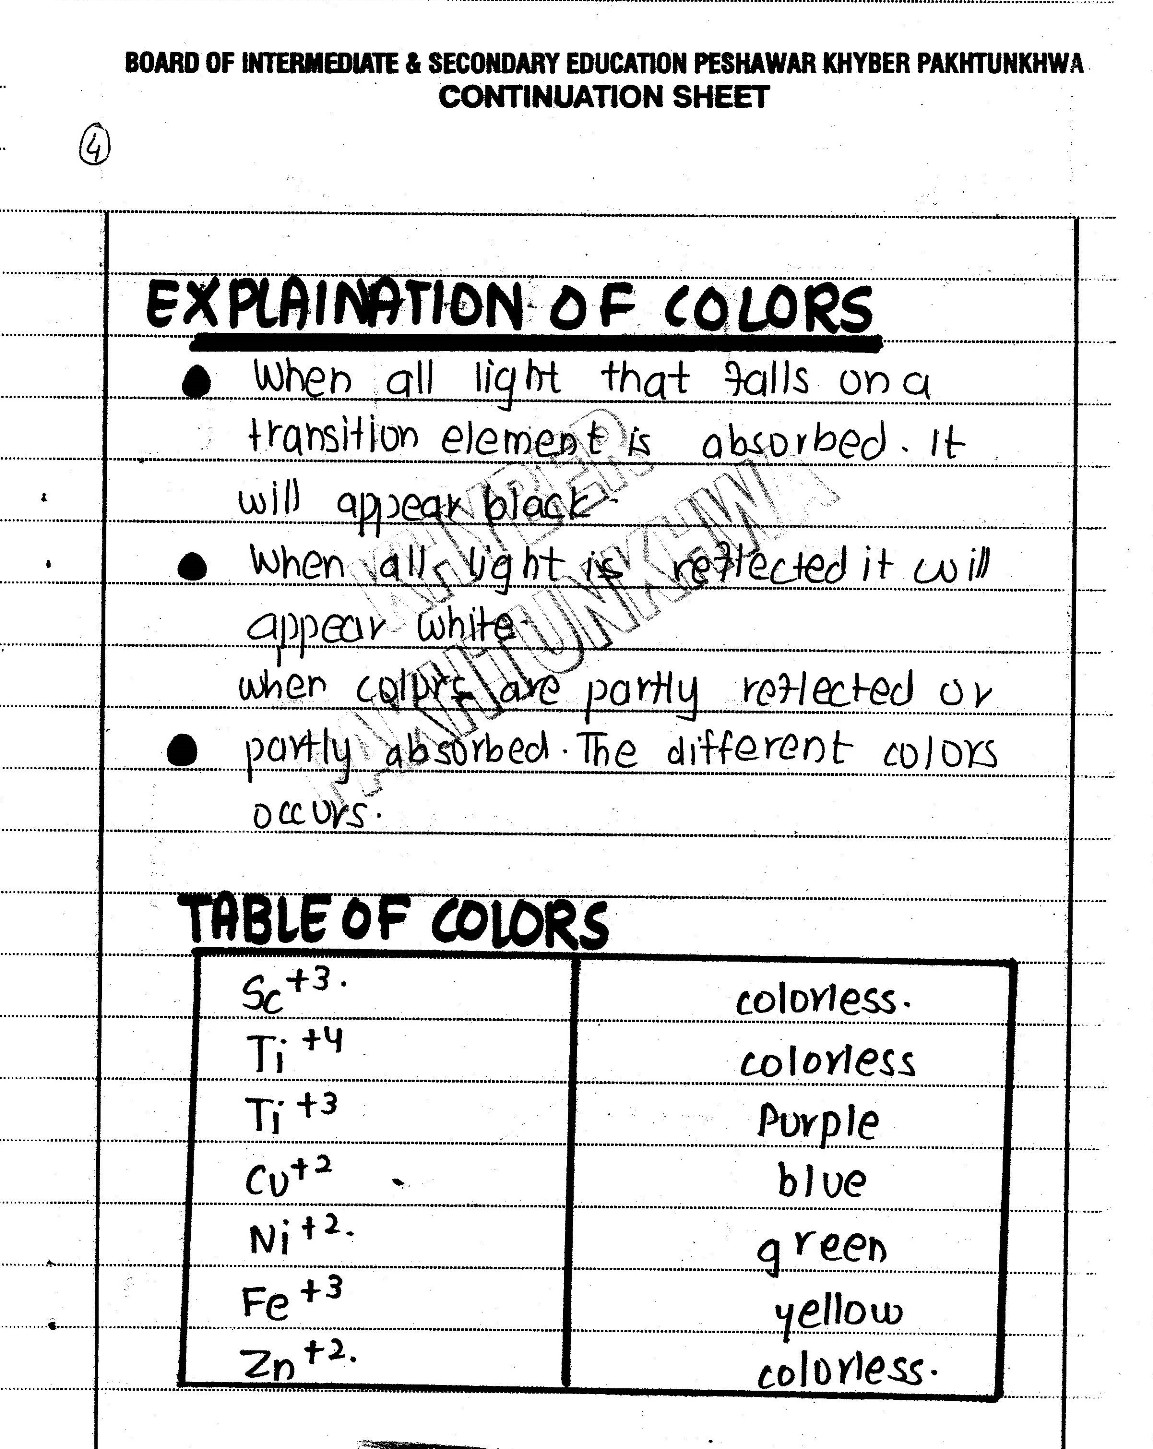 BOARD OF INTERMEDIATE & SECONDARY EDUCATION PESHAWAR KHYBER PAKHTUNKHWA
CONTINUATION SHEET
4
EXPLAINATION OF COLORS
● When all light that falls on a
transition element is absorbed. It
will appear black.
● When all light is reflected it will
appear white.
when colors are partly reflected or
● partly absorbed. The different colors
occurs.
KHYBER
PAKHTUNKHWA
TABLE OF COLORS
Sc⁺³. colorless.
Ti⁺⁴ colorless
Ti⁺³ Purple
Cu⁺² blue
Ni⁺². green
Fe⁺³ yellow
Zn⁺². colorless.